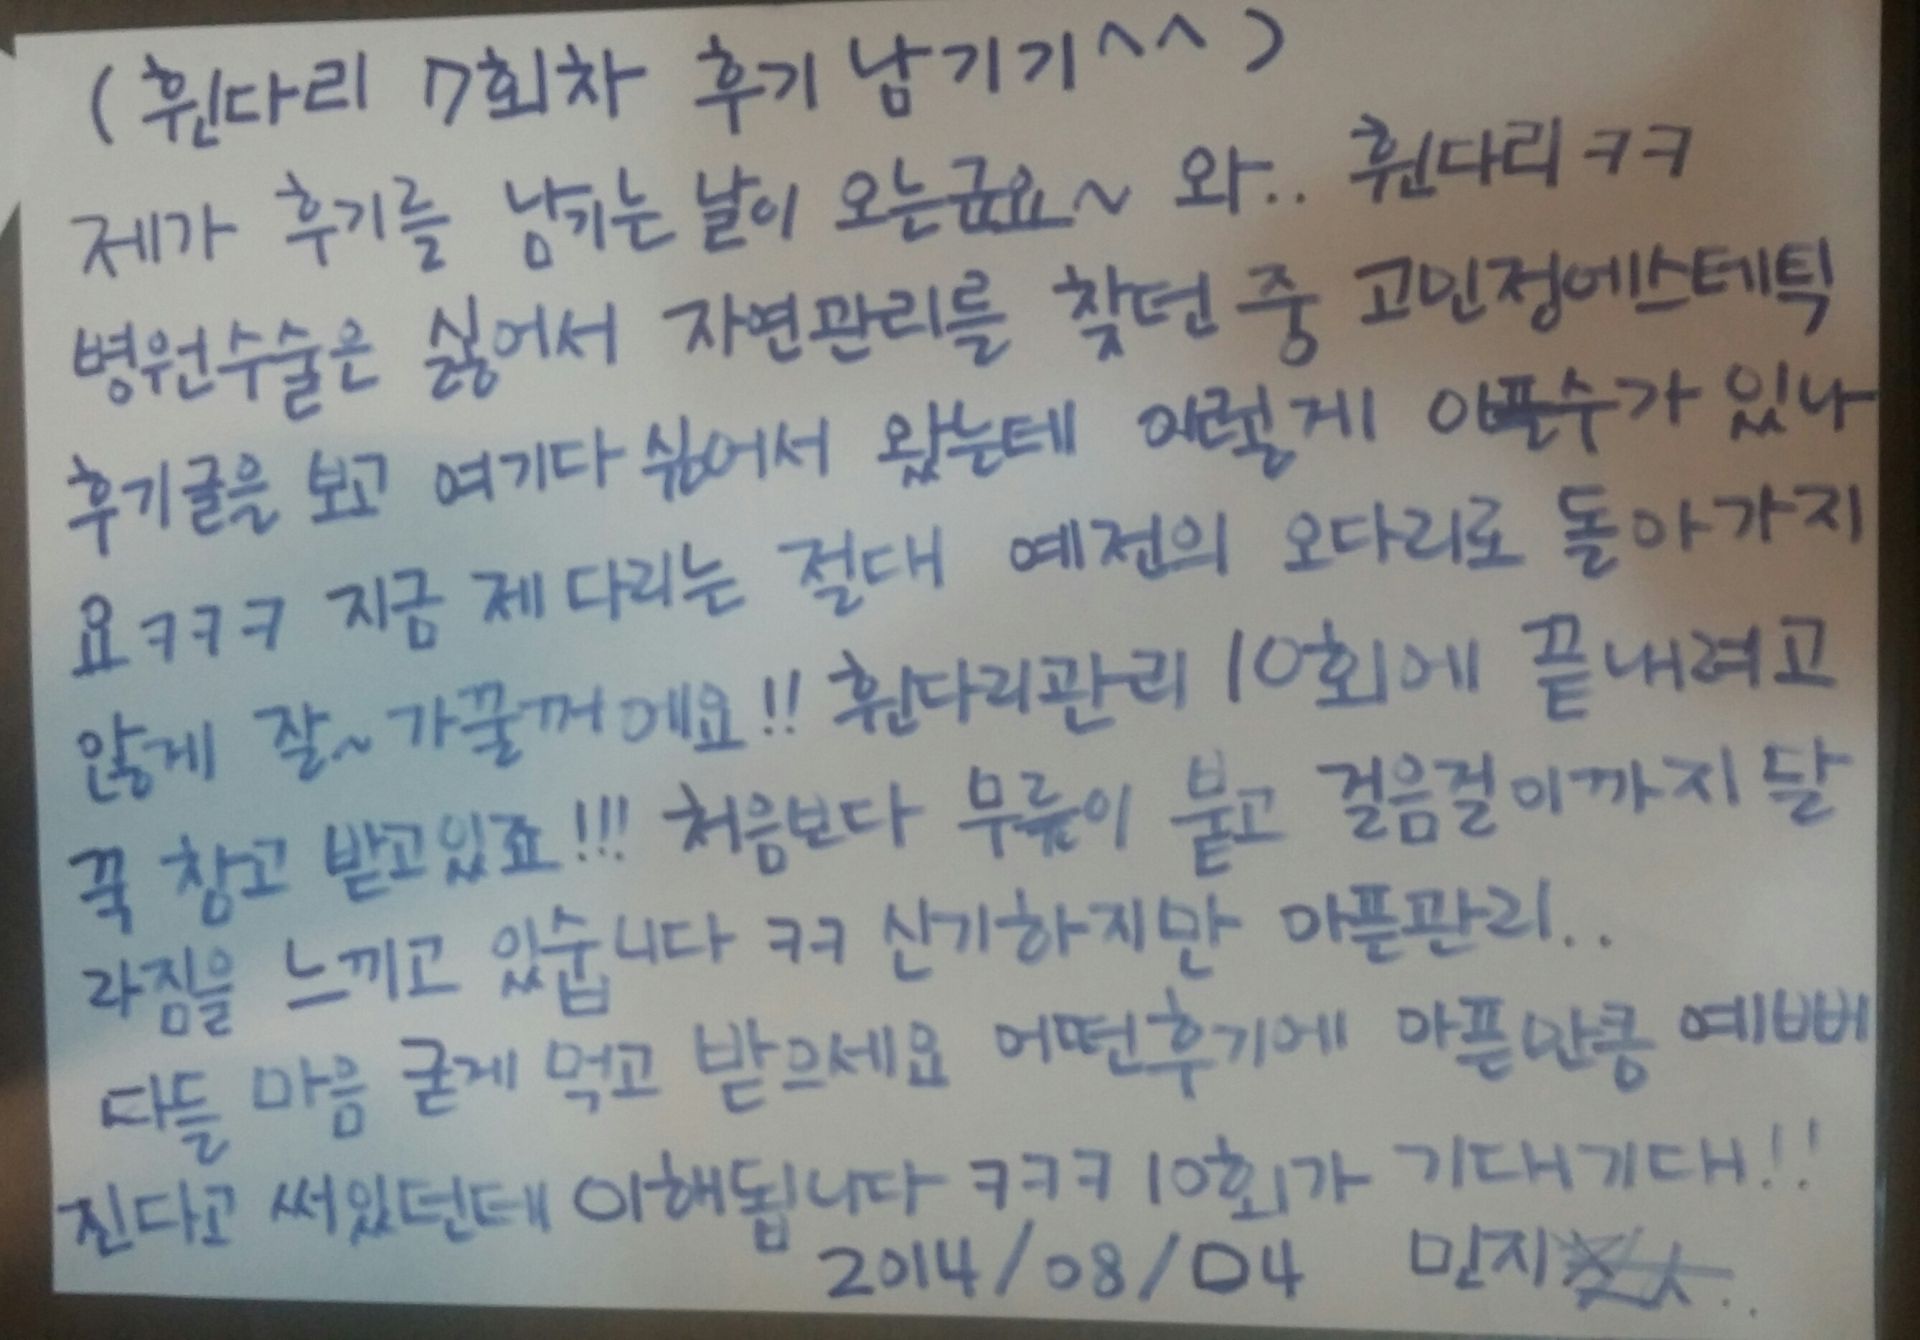 (휜다리 7회차 후기 남기기^^)
제가 후기를 남기는 날이 오는군요~ 와.. 휜다리ㅋㅋ
병원수술은 싫어서 자연관리를 찾던 중 고민정에스테틱
후기글을 보고 여기다 싶어서 왔는데 이렇게 아플수가 있나
요ㅋㅋㅋ 지금 제 다리는 절대 예전의 오다리로 돌아가지
않게 잘~ 가꿀꺼에요!! 휜다리관리 10회에 끝내려고
꾹 참고 받고있죠!!! 처음보다 무릎이 붙고 걸음걸이까지 달
라짐을 느끼고 있숩니다 ㅋㅋ 신기하지만 아픈관리..
다들 마음 굳게 먹고 받으세요 어떤후기에 아픈만큼 예뻐
진다고 써있던데 이해됩니다 ㅋㅋㅋ 10회가 기대기대!!
2014/08/04 민지